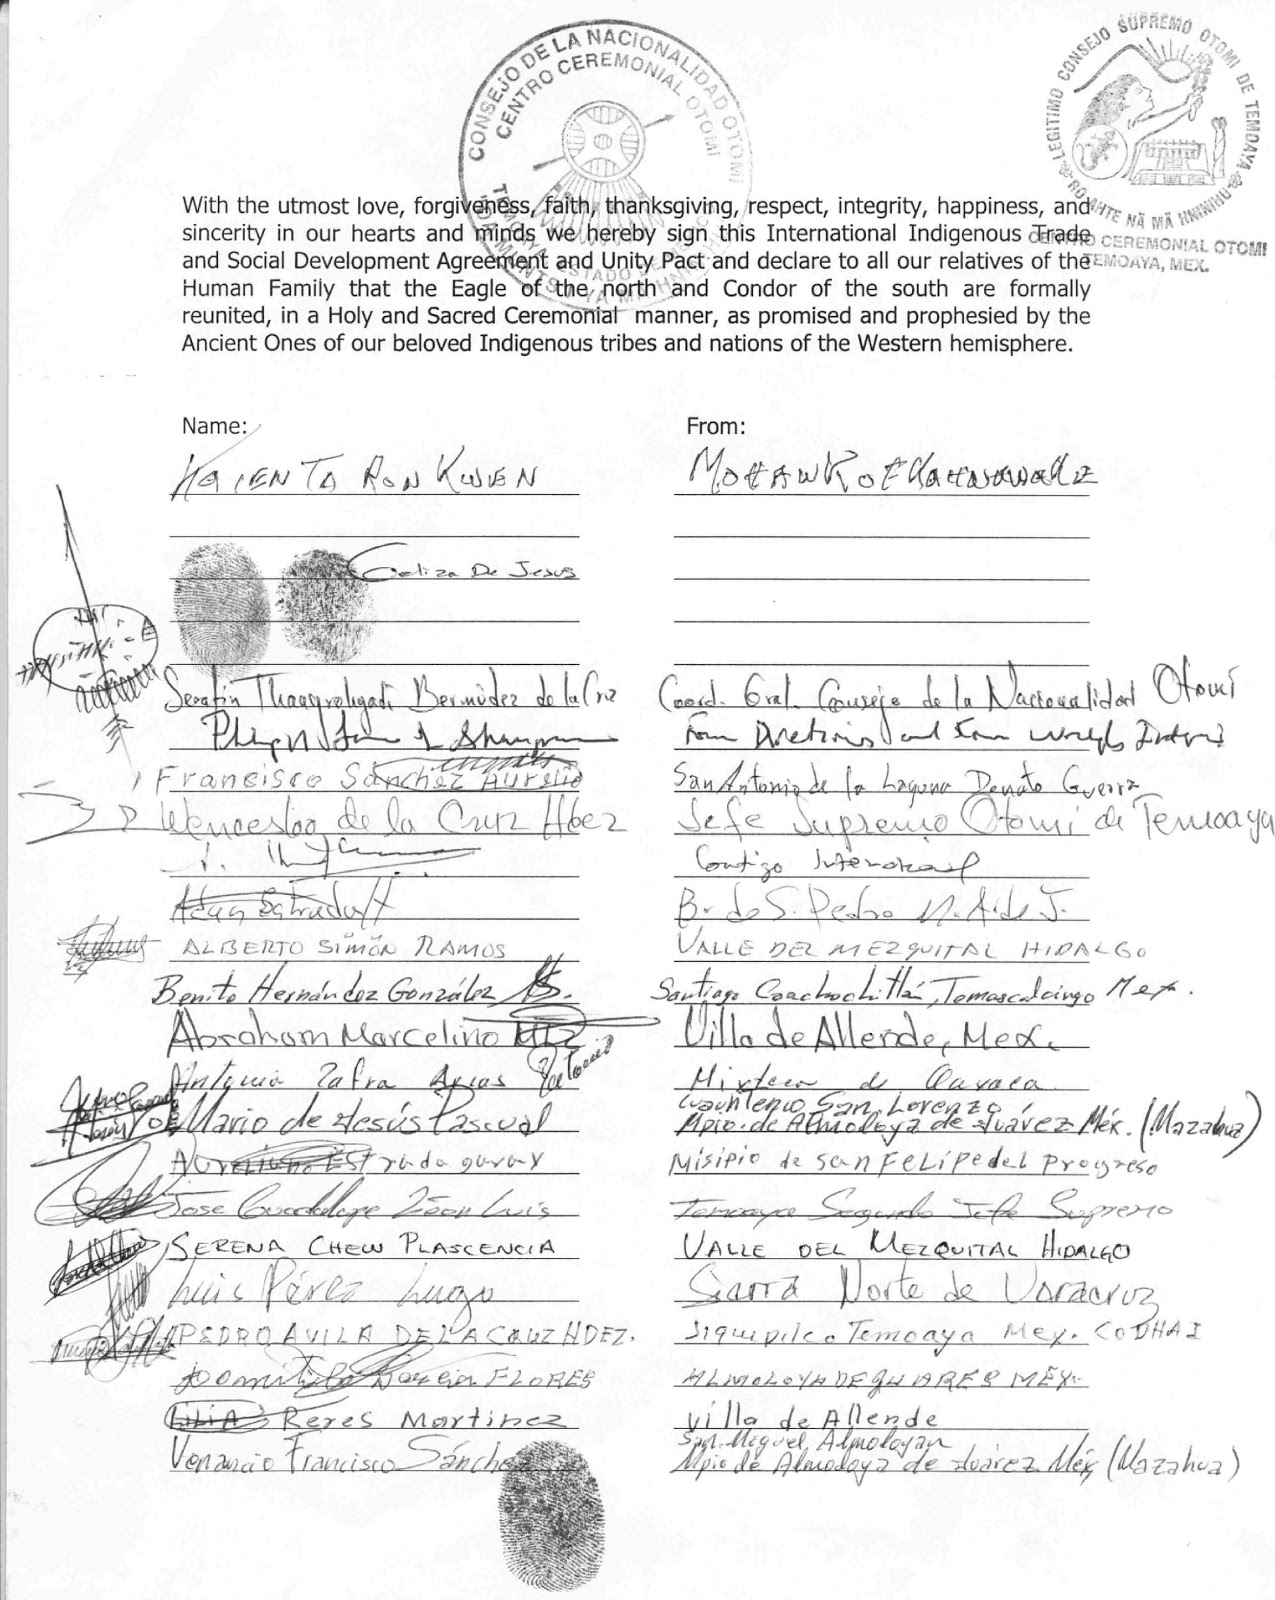 CONSEJO DE LA NACIONALIDAD OTOMI
CENTRO CEREMONIAL OTOMI
TEMOAYA ESTADO DE MEXICO
LEGITIMO CONSEJO SUPREMO OTOMI DE TEMOAYA
NÄ MÄ HNINIHU
CENTRO CEREMONIAL OTOMI
TEMOAYA, MEX.
With the utmost love, forgiveness, faith, thanksgiving, respect, integrity, happiness, and
sincerity in our hearts and minds we hereby sign this International Indigenous Trade
and Social Development Agreement and Unity Pact and declare to all our relatives of the
Human Family that the Eagle of the north and Condor of the south are formally
reunited, in a Holy and Sacred Ceremonial manner, as promised and prophesied by the
Ancient Ones of our beloved Indigenous tribes and nations of the Western hemisphere.
Name: From:
RON KWEN MOHAWK OF KAHNAWAKE
De Jesus
Serafín Bermúdez de la Cruz Coord. Gral. Consejo de la Nacionalidad Otomí
From Directions and
Francisco Sánchez Aurelio San Antonio de la Laguna Donato Guerra
Wenceslao de la Cruz Hdez Jefe Supremo Otomi de Temoaya
Contigo
S. Pedro
ALBERTO SIMÓN RAMOS VALLE DEL MEZQUITAL HIDALGO
Benito Hernández González Santiago Coachochitlán, Temascalcingo Mex.
Abraham Marcelino Villa de Allende, Mex.
Antonia Zafra Arias Mixteca de Oaxaca
Cuauntenco San Lorenzo,
Mario de Jesús Pascual Mpio. de Almoloya de Juárez Méx. (Mazahua)
Estrada garay Misipio de san FELIPE del Progreso
Jose Guadalupe León Luis Temoaya Segundo Jefe Supremo
SERENA CHEW PLASCENCIA VALLE DEL MEZQUITAL HIDALGO
Luis Pérez Lugo Sierra Norte de Veracruz
PEDRO AVILA DE LA CRUZ HDEZ. Jiquipilco Temoaya Mex. CODHAI
FLORES ALMOLOYA DE JUARES MÉX.
LILIA Reres Martinez villa de Allende
San Miguel Almoloyan
Venancio Francisco Sánchez Mpio de Almoloya de Juárez Méx (Mazahua)